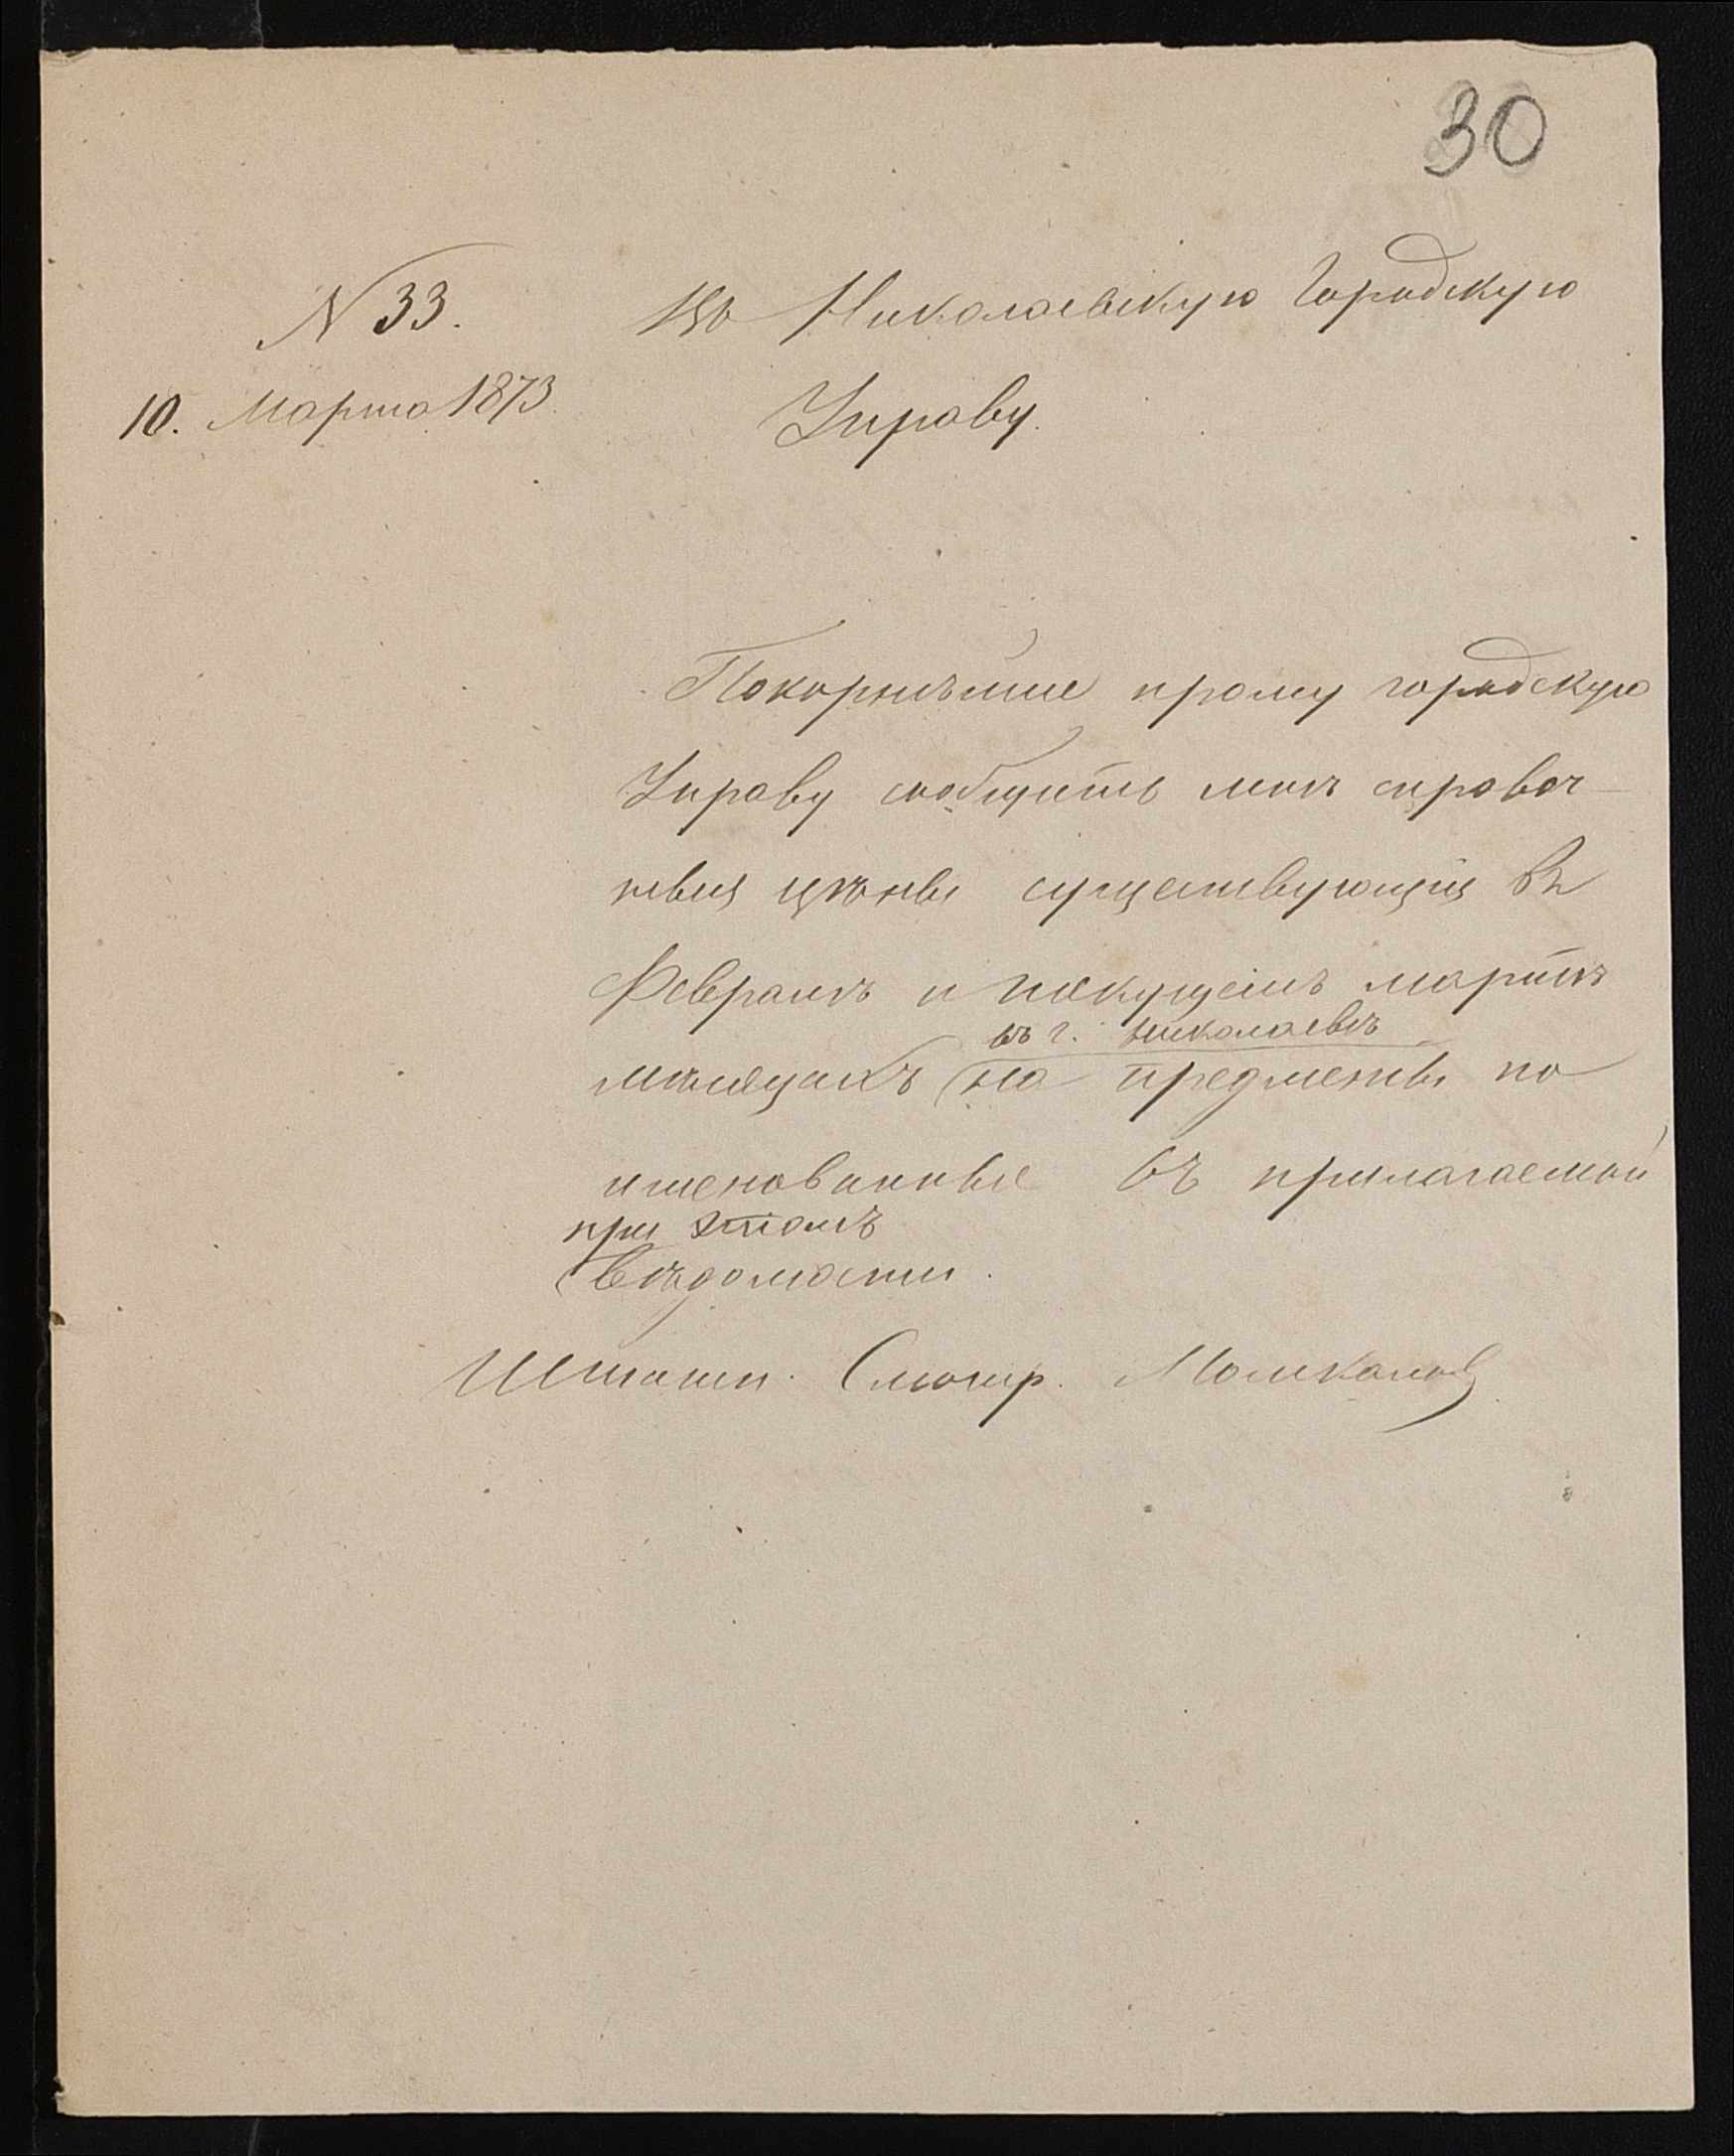 30
N 33.
Въ Николаевскую Городскую
10. Марта 1873.
Управу.
Покорнѣйше прошу городскую
Управу сообщить мнѣ справоч-
ныя цѣны существующія въ
Февралѣ и текущемъ мартѣ
въ г. Николаевѣ
мѣсяцахъ на предметы по
именованные въ прилагаемой
при этомъ
вѣдомости.
Смотр.